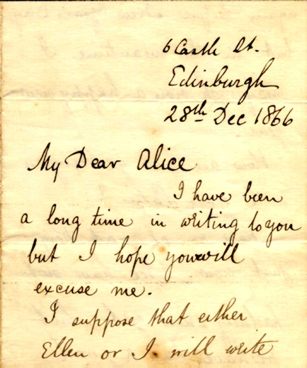 6 Castle St.
Edinburgh
28th Dec 1866
My Dear Alice
I have been
a long time in writing to you
but I hope you will
excuse me.
I suppose that either
Ellen or I will write